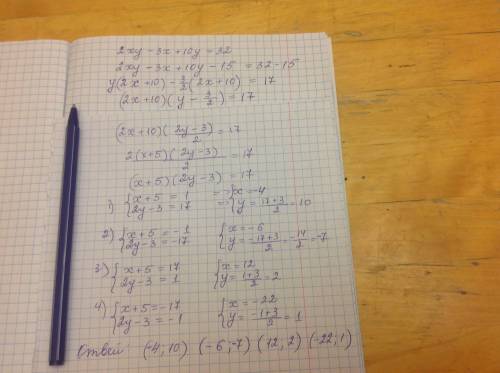 2xy - 3x + 10y = 32
2xy - 3x + 10y - 15 = 32 - 15
y(2x + 10) - 3/2 (2x + 10) = 17
(2x + 10)(y - 3/2) = 17
(2x + 10)((2y - 3)/2) = 17
2(x + 5)(2y - 3)/2 = 17
(x + 5)(2y - 3) = 17
1) { x + 5 = 1 => { x = -4
2y - 3 = 17 => y = (17 + 3)/2 = 10
2) { x + 5 = -1 { x = -6
2y - 3 = -17 y = (-17 + 3)/2 = -14/2 = -7
3) { x + 5 = 17 { x = 12
2y - 3 = 1 y = (1 + 3)/2 = 2
4) { x + 5 = -17 { x = -22
2y - 3 = -1 y = (-1 + 3)/2 = 1
Ответ (-4; 10) (-6; -7) (12; 2) (-22; 1)